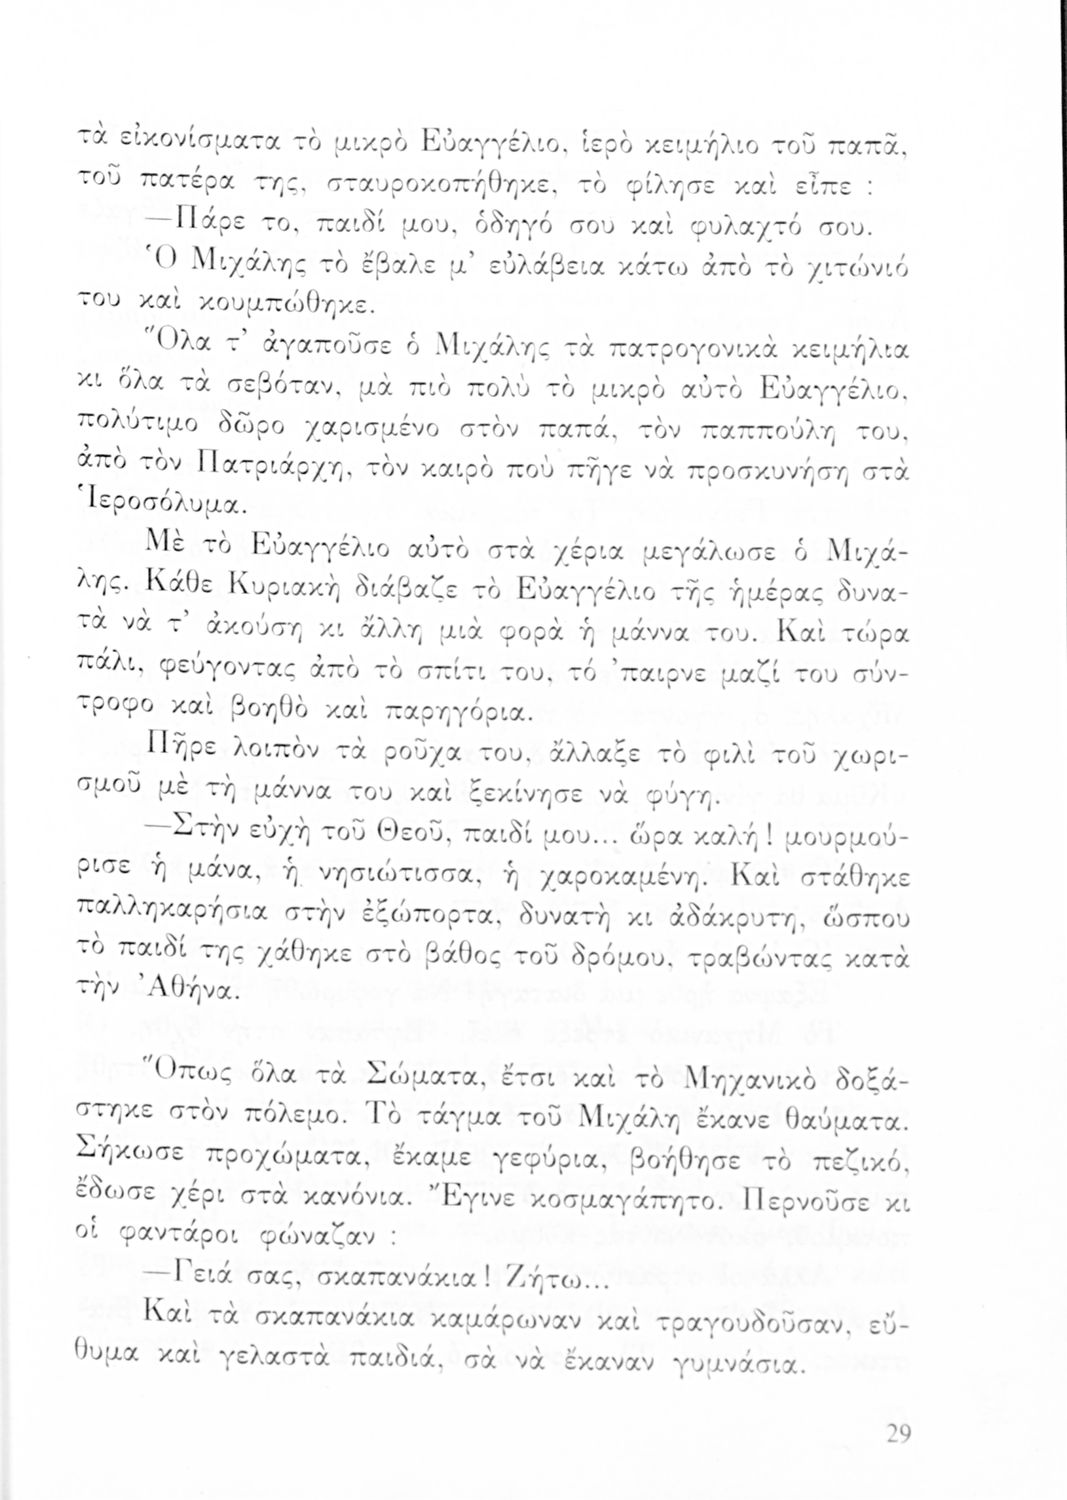 τὰ εἰκονίσματα τὸ μικρὸ Εὐαγγέλιο, ἱερὸ κειμήλιο τοῦ παπᾶ,
τοῦ πατέρα της, σταυροκοπήθηκε, τὸ φίλησε καὶ εἶπε :
—Πάρε το, παιδί μου, ὁδηγό σου καὶ φυλαχτό σου.
Ὁ Μιχάλης τὸ ἔβαλε μ’ εὐλάβεια κάτω ἀπὸ τὸ χιτώνιό
του καὶ κουμπώθηκε.
Ὅλα τ’ ἀγαποῦσε ὁ Μιχάλης τὰ πατρογονικὰ κειμήλια
κι ὅλα τὰ σεβόταν, μὰ πιὸ πολὺ τὸ μικρὸ αὐτὸ Εὐαγγέλιο,
πολύτιμο δῶρο χαρισμένο στὸν παπά, τὸν παππούλη του,
ἀπὸ τὸν Πατριάρχη, τὸν καιρὸ ποὺ πῆγε νὰ προσκυνήση στὰ
Ἱεροσόλυμα.
Μὲ τὸ Εὐαγγέλιο αὐτὸ στὰ χέρια μεγάλωσε ὁ Μιχά-
λης. Κάθε Κυριακὴ διάβαζε τὸ Εὐαγγέλιο τῆς ἡμέρας δυνα-
τὰ νὰ τ’ ἀκούση κι ἄλλη μιὰ φορὰ ἡ μάννα του. Καὶ τώρα
πάλι, φεύγοντας ἀπὸ τὸ σπίτι του, τό ’παιρνε μαζί του σύν-
τροφο καὶ βοηθὸ καὶ παρηγόρια.
Πῆρε λοιπὸν τὰ ροῦχα του, ἄλλαξε τὸ φιλὶ τοῦ χωρι-
σμοῦ μὲ τὴ μάννα του καὶ ξεκίνησε νὰ φύγη.
—Στὴν εὐχὴ τοῦ Θεοῦ, παιδί μου... ὥρα καλή ! μουρμού-
ρισε ἡ μάνα, ἡ νησιώτισσα, ἡ χαροκαμένη. Καὶ στάθηκε
παλληκαρήσια στὴν ἐξώπορτα, δυνατὴ κι ἀδάκρυτη, ὥσπου
τὸ παιδί της χάθηκε στὸ βάθος τοῦ δρόμου, τραβώντας κατὰ
τὴν Ἀθήνα.
Ὅπως ὅλα τὰ Σώματα, ἔτσι καὶ τὸ Μηχανικὸ δοξά-
στηκε στὸν πόλεμο. Τὸ τάγμα τοῦ Μιχάλη ἔκανε θαύματα.
Σήκωσε προχώματα, ἔκαμε γεφύρια, βοήθησε τὸ πεζικό,
ἔδωσε χέρι στὰ κανόνια. Ἔγινε κοσμαγάπητο. Περνοῦσε κι
οἱ φαντάροι φώναζαν :
—Γειά σας, σκαπανάκια ! Ζήτω...
Καὶ τὰ σκαπανάκια καμάρωναν καὶ τραγουδοῦσαν, εὔ-
θυμα καὶ γελαστὰ παιδιά, σὰ νὰ ἔκαναν γυμνάσια.
29